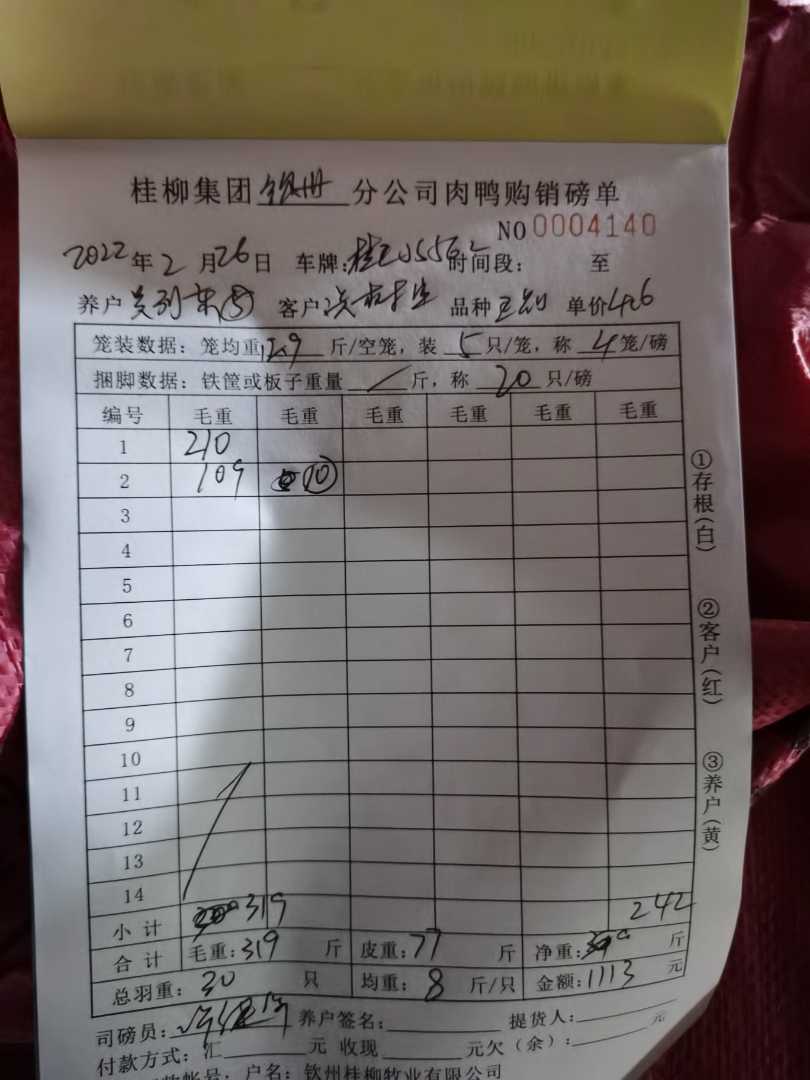 桂柳集团 分公司肉鸭购销磅单
NO 0004140
2022年2月26日 车牌: 时间段: 至
养户 客户 品种 单价4.6
笼装数据: 笼均重 斤/空笼, 装 5 只/笼, 称 4 笼/磅
捆脚数据: 铁筐或板子重量 / 斤, 称 20 只/磅
编号 毛重 毛重 毛重 毛重 毛重 毛重
1 210
2 109 ⑩
3
4
5
6
7
8
9
10
11
12
13
14
小计 319 242
合计 毛重: 319 斤 皮重: 77 斤 净重: 斤
总羽重: 30 只 均重: 8 斤/只 金额: 1113 元
司磅员: 养户签名: 提货人:
付款方式: 汇 元 收现 元欠(余): 元
户名: 钦州桂柳牧业有限公司
①存根(白)
②客户(红)
③养户(黄)